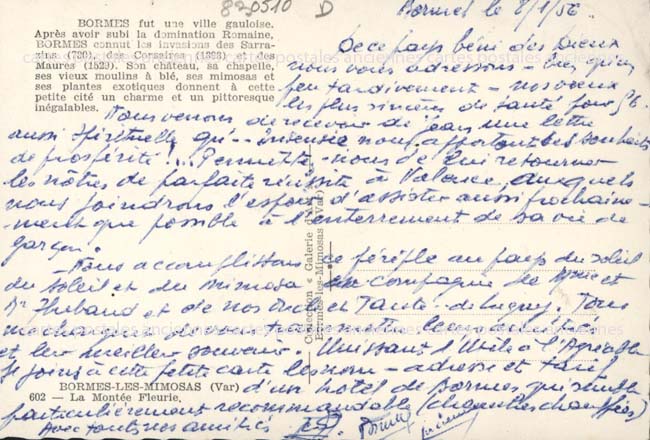 820510 D
Bormes le 8/1/56
BORMES fut une ville gauloise.
Après avoir subi la domination Romaine,
BORMES connut les invasions des Sarra-
sins (730), des Corsaires (1393) et des
Maures (1529). Son château, sa chapelle,
ses vieux moulins à blé, ses mimosas et
ses plantes exotiques donnent à cette
petite cité un charme et un pittoresque
inégalables.
De ce pays béni des Dieux
nous vous adressons - bien qu'un
peu tardivement - nos vœux
les plus sincères de santé pour 56.
Nous venons de recevoir de Jean une lettre
aussi spirituelle qu' intensie nous apportant ses souhaits
de prospérité... Permettez-nous de lui retourner
les nôtres de parfaite réussite à Valence, auxquels
nous joindrons l'espoir d'assister aussi prochaine-
-ment que possible à l'enterrement de sa vie de
garçon.
Nous accomplissons ce périple au pays du soleil
du soleil et du mimosa en compagnie de Mme et
Mr Thibaud et de nos et Tante de Lugny. Tous
me chargent de vous transmettre leurs amitiés
et leur meilleur souvenir. Unissant l'Utile à l'Agréable
je joins à cette petite carte les nom - adresse et tarif
d'un hôtel de Bormes qui semble
particulièrement recommandable (chambres chauffées)
Avec toutes nos amitiés
BORMES-LES-MIMOSAS (Var)
602 — La Montée Fleurie.
Collection « Galerie d'
Bormes-les-Mimosas (Var)
cartes postales anciennes cartes postales anciennes